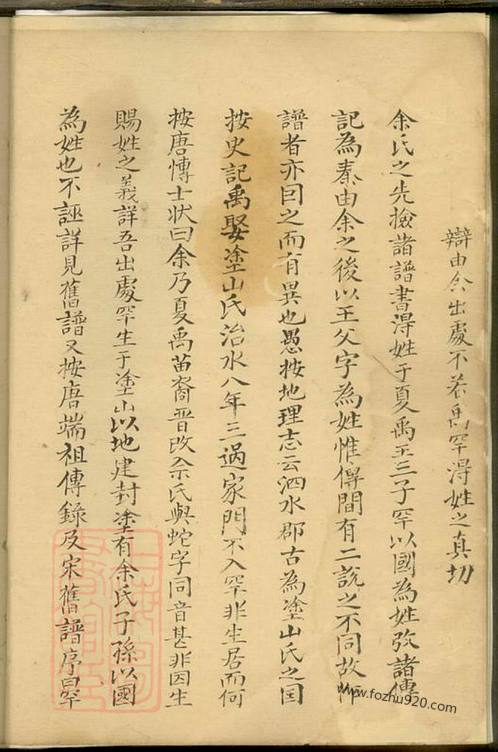 辯由余出處不若禹罕得姓之真切
余氏之先撿諸譜書得姓于夏禹王三子罕以國為姓攷諸傳
記為秦由余之後以王父字為姓惟傳間有二説之不同故作
譜者亦因之而有異也愚按地理志云泗水郡古為塗山氏之国
按史記禹娶塗山氏治水八年三過家門不入罕非生居而何
按唐愽士状曰余乃夏禹苗裔晉改余氏與蛇字同音甚非因生
賜姓之義詳吾出處罕生于塗山以地建封塗有余氏子孫以國
為姓也不誣詳見舊譜又按唐端祖傳錄及宋舊譜序曰罕
www.fozhu920.com